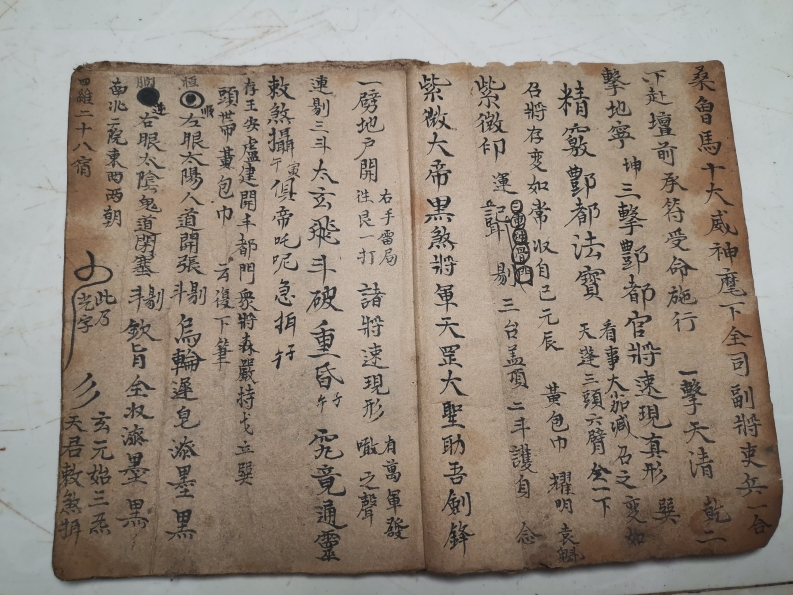 桑魯馬十大威神麾下全司副將吏兵一合
下赴壇前承符受命施行 一擊天清 乾二
擊地寧 坤 三擊酆都官將速現真形 巽
精竅酆都法寶 看事大加減召之變如
天蓬三頭六臂 一下
召將存變如常收自己元辰 黃包巾 耀明
紫微印 運 剔 三台蓋頂 二斗護自 念
紫微大帝黑煞將軍天罡大聖助吾劍鋒
一劈地戶開 右手雷局 艮一打 諸將速現形 有萬軍發 之聲
連剔三斗 太玄飛斗破重昏 午 究竟通靈
敕煞攝 午寅 俱帝吒呢急
存王安盧建開丰都門眾將森嚴持戈立巽
頭帶黃包巾 云復下筆
右眼太陽人道開張 剔斗 烏輪遲皂添墨黑
右眼太陰鬼道閉塞 剔斗 欽旨全叔添墨黑
南北二院東西兩朝 此乃 玄元始三炁
四維二十八宿 字 天君敕煞